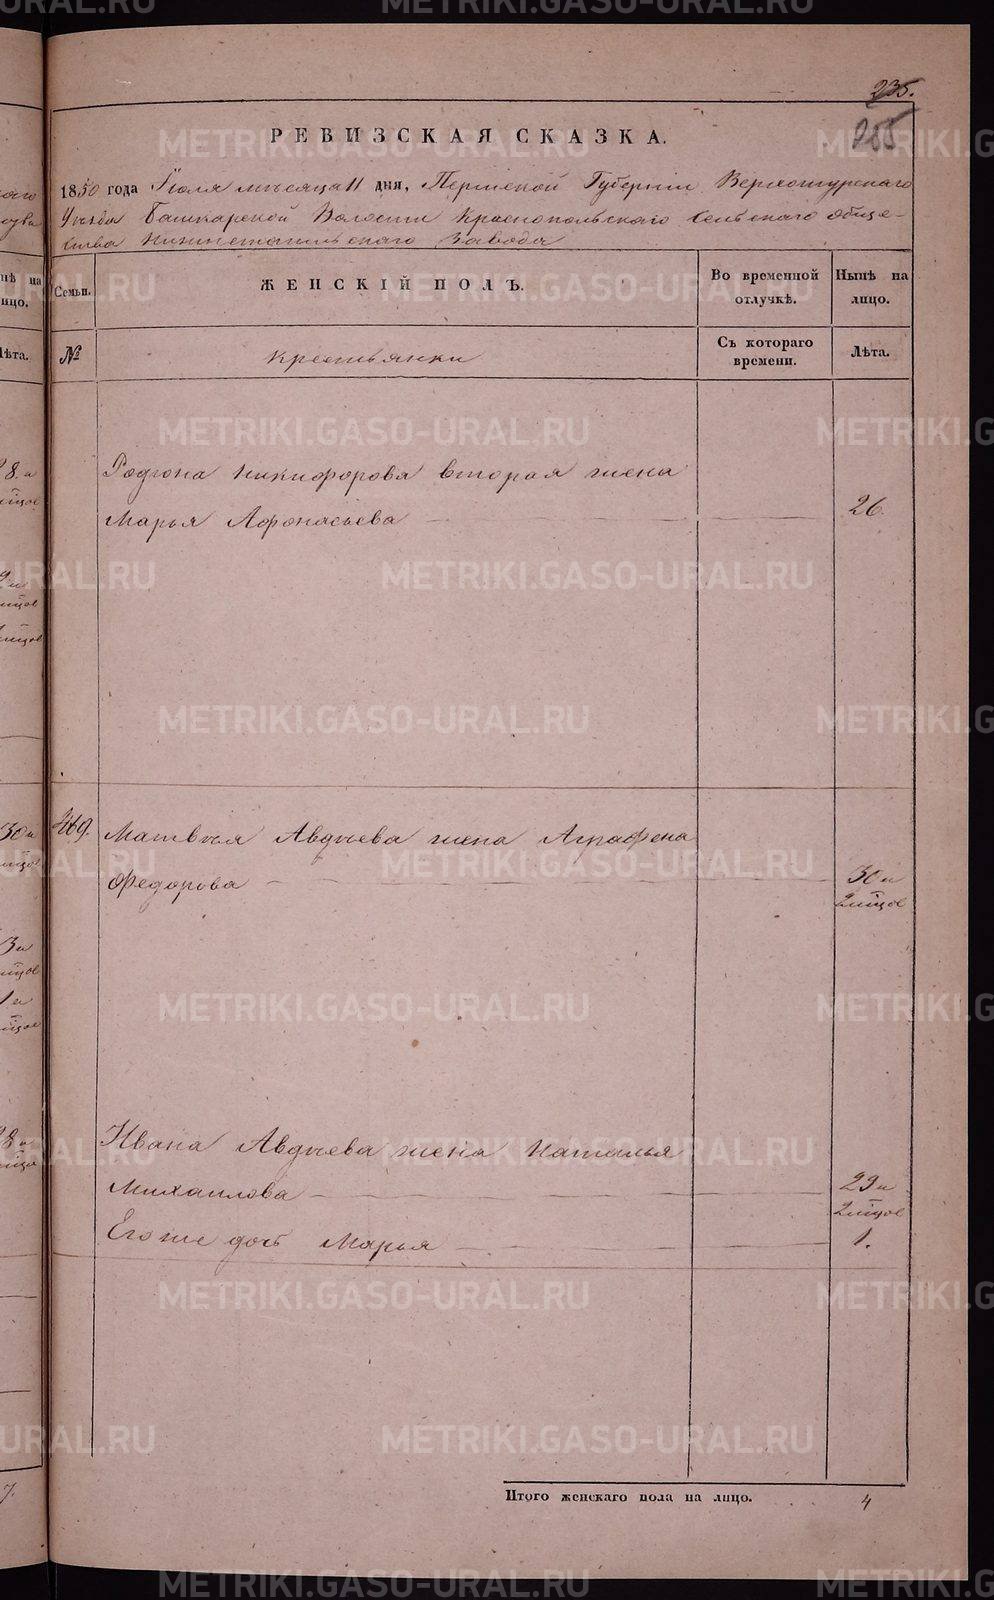 METRIKI.GASO-URAL.RU
235.
255
РЕВИЗСКАЯ СКАЗКА.
1850 года Іюля мѣсяца 11 дня, Пермской Губерніи Верхотурскаго
Уѣзда Башкарской Волости Краснопольскаго сельскаго обще-
ства Нижнетагильскаго завода
Семьи. ЖЕНСКІЙ ПОЛЪ. Во временной отлучкѣ. Нынѣ на лицо.
№ Крестьянки Съ котораго времени. Лѣта.
Родіона Никифорова вторая жена
Марья Афонасьева 26.
469. Матвѣя Авдѣева жена Аграфена
Федорова 30 и
Ивана Авдѣева жена Наталья
Михаилова 29 и
Егоже дочь Марья 1.
Итого женскаго пола на лицо. 4